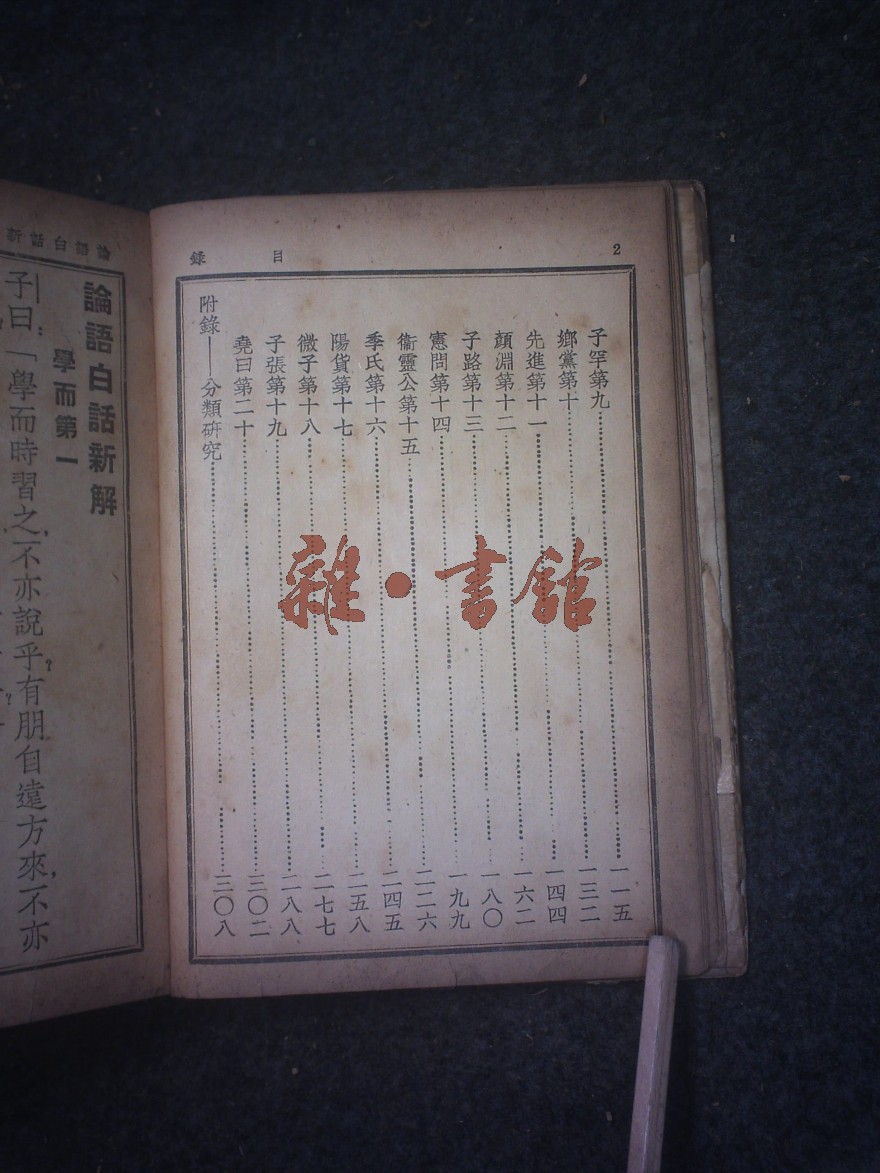 目錄
2
子罕第九 一一五
鄉黨第十 一三二
先進第十一 一四四
顏淵第十二 一六二
子路第十三 一八〇
憲問第十四 一九九
衞靈公第十五 二二六
季氏第十六 二四五
陽貨第十七 二五八
微子第十八 二七七
子張第十九 二八八
堯曰第二十 三〇二
附錄——分類研究 三〇八
論語白話新
論語白話新解
學而第一
子曰：「學而時習之，不亦說乎？有朋自遠方來，不亦
雜·書館